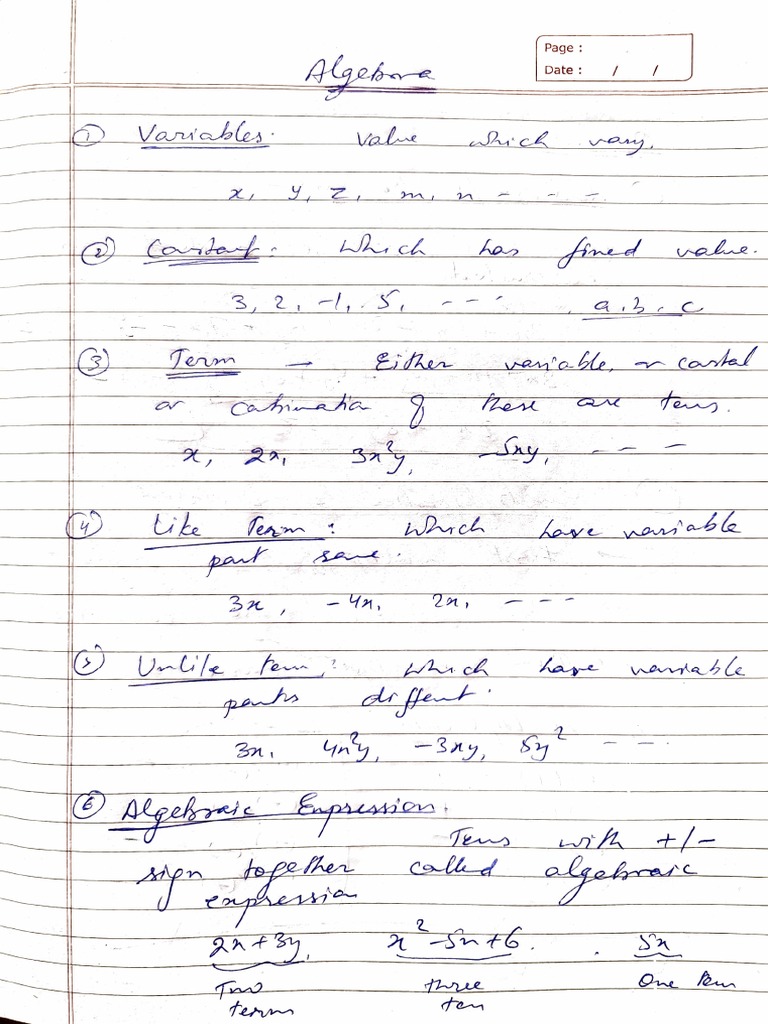 Algebra
Page :
Date : / /
① Variables. Value which vary.
x, y, z, m, n - - -
② Constant: Which has fixed value.
3, 2, -1, 5, - - - a. b. c
③ Term — Either variable, or constal
or combination of these are terms.
x, 2x, 3x²y, -5xy, - - -
④ Like Term: Which have variable
part same.
3x, -4x, 2x, - - -
⑤ Unlike term: Which have variable
parts diffent.
3x, 4x²y, -3xy, 5y² - - -
⑥ Algebraic Expression.
Terms with +/-
sign together called algebraic
expression
2x+3y, x²-5x+6. 5x
Two three One term
term ten